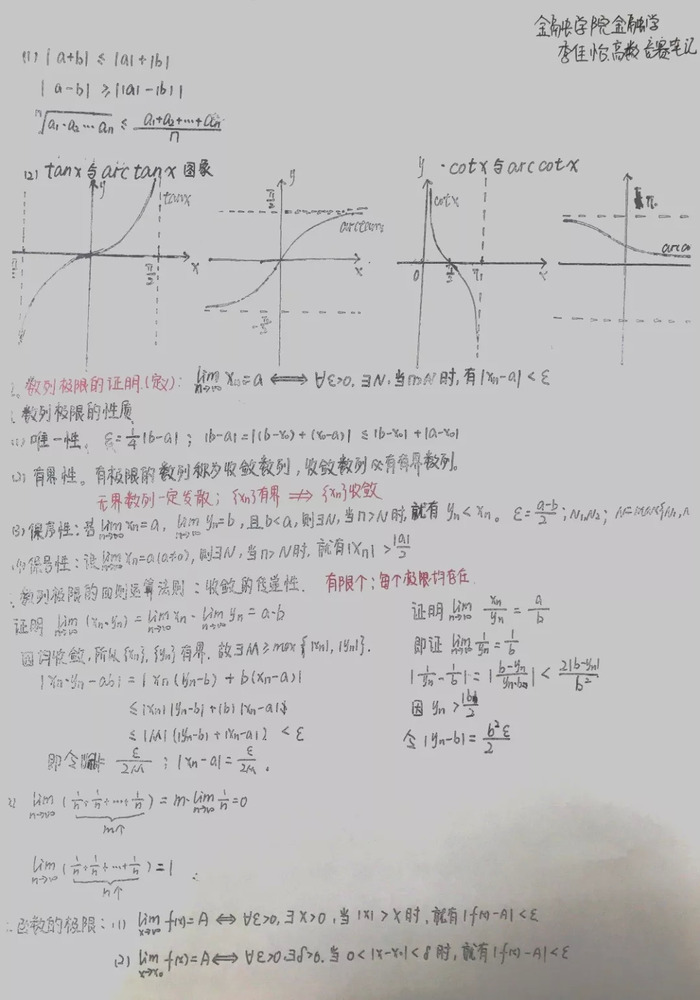 金融学院金融学
李佳怡高数竞赛笔记
(1) |a+b| ≤ |a|+|b|
|a-b| ≥ ||a|-|b||
ⁿ√(a₁·a₂…aₙ) ≤ (a₁+a₂+…+aₙ)/n
(2) tanx与arctanx图象 ·cotx与arccotx
y tanx x π/2
π/2 y arctanx x -π/2
y cotx 0 π/2 π x
π
数列极限的证明(定义): lim(n→∞) xₙ=a ⟺ ∀ε>0, ∃N, 当n>N时, 有|xₙ-a|<ε
数列极限的性质
(1) 唯一性. ε=1/4|b-a| ; |b-a|=|(b-x₀)+(x₀-a)| ≤ |b-x₀|+|a-x₀|
(2) 有界性。有极限的数列称为收敛数列, 收敛数列必有有界数列。
无界数列一定发散; {xₙ}有界 ⟹ {xₙ}收敛
(3) 保序性: 若lim(n→∞) xₙ=a, lim(n→∞) yₙ=b, 且b<a, 则∃N, 当n>N时, 就有yₙ<xₙ。 ε=(a-b)/2 ; N₁,N₂;
(4) 保号性: 设lim(n→∞) xₙ=a(a≠0), 则∃N, 当n>N时, 就有|xₙ|>|a|/2
数列极限的四则运算法则: 收敛的传递性. 有限个; 每个极限均存在
证明 lim(n→∞) (xₙ·yₙ)=lim(n→∞) xₙ·lim(n→∞) yₙ=a·b
因同收敛, 所以{xₙ},{yₙ}有界. 故∃M≥max{|xₙ|,|yₙ|}.
|xₙ·yₙ-ab|=|xₙ(yₙ-b)+b(xₙ-a)|
≤|xₙ||yₙ-b|+|b||xₙ-a|
≤|M|(|yₙ-b|+|xₙ-a|) <ε
即令 = ε/2M ; |xₙ-a|=ε/2M.
证明 lim(n→∞) xₙ/yₙ=a/b
即证 lim(n→∞) 1/yₙ=1/b
|1/yₙ-1/b|=|(b-yₙ)/(yₙ·b)|<2|b-yₙ|/b²
因 yₙ>|b|/2
令|yₙ-b|=b²ε/2
lim(n→∞) (1/n+1/n+…+1/n)=m·lim(n→∞) 1/n=0
m个
lim(n→∞) (1/n+1/n+…+1/n)=1
n个
函数的极限: (1) lim(x→∞) f(x)=A ⟺ ∀ε>0, ∃X>0, 当|x|>X时, 就有|f(x)-A|<ε
(2) lim(x→x₀) f(x)=A ⟺ ∀ε>0. ∃δ>0. 当0<|x-x₀|<δ时, 就有|f(x)-A|<ε